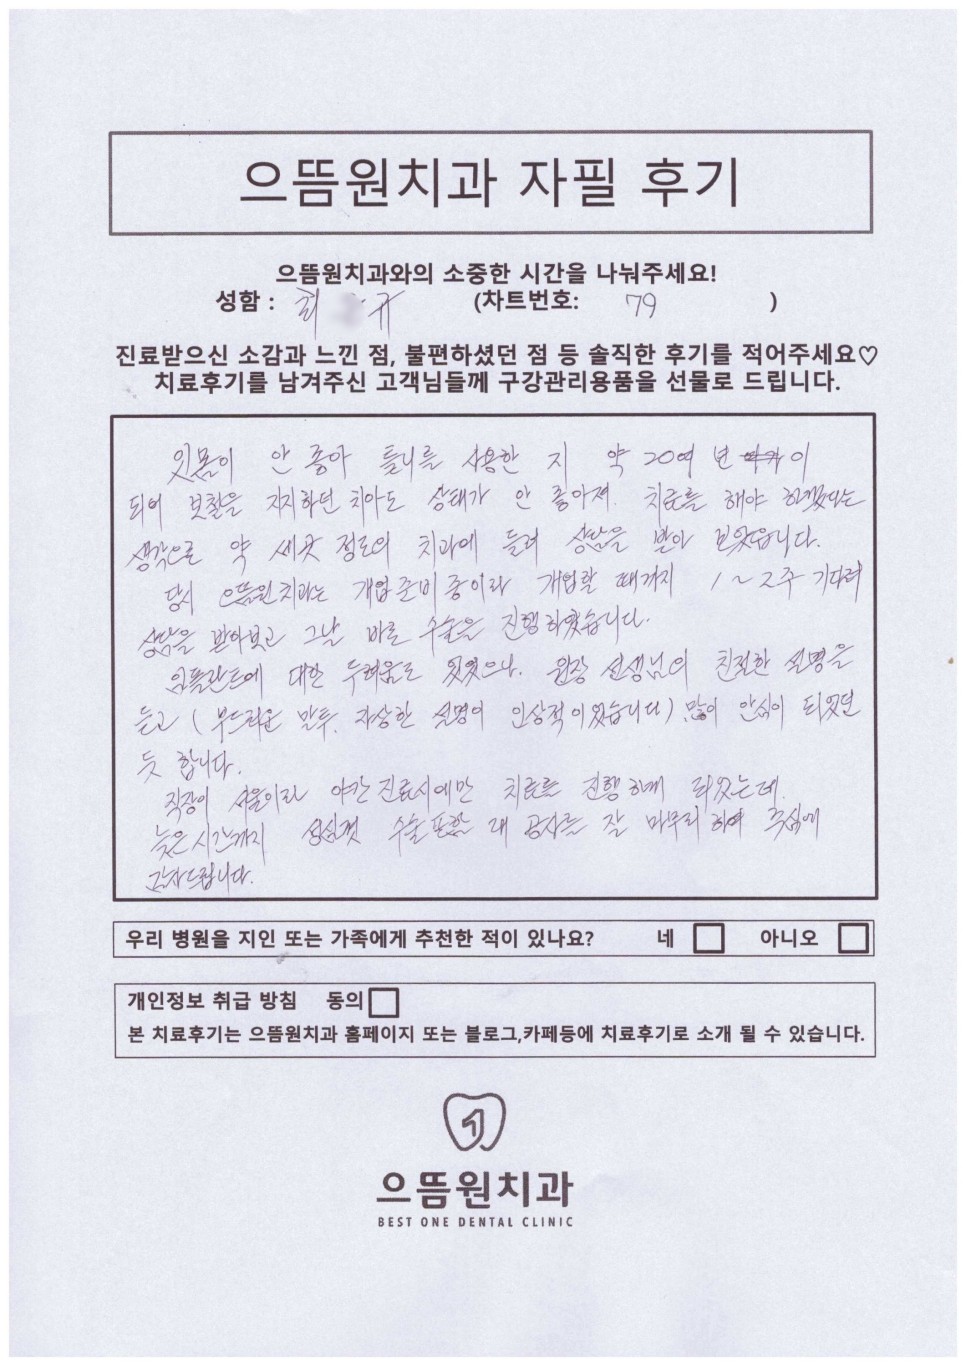 으뜸원치과 자필 후기
으뜸원치과와의 소중한 시간을 나눠주세요!
성함 : 최 규 (차트번호: 79 )
진료받으신 소감과 느낀 점, 불편하셨던 점 등 솔직한 후기를 적어주세요♡
치료후기를 남겨주신 고객님들께 구강관리용품을 선물로 드립니다.
잇몸이 안 좋아 틀니를 사용한 지 약 20여 년 이
되어 보철을 지지하던 치아도 상태가 안 좋아져. 치료를 해야 하겠다는
생각으로 약 세곳 정도의 치과에 들려 상담을 받아 보았습니다.
당시 으뜸원치과는 개업준비중이라 개업할 때까지 1~2주 기다려
상담을 받아보고 그날 바로 수술을 진행하였습니다.
임플란트에 대한 두려움도 있었으나. 원장 선생님의 친절한 설명을
듣고 (부드러운 말투. 자상한 설명이 인상적이었습니다) 많이 안심이 되었던
듯 합니다.
직장이 서울이라 야간진료시에만 치료를 진행하게 되었는데.
늦은시간까지 성심껏 수술포함 대 공사를 잘 마무리 하여 주심에
감사드립니다.
우리 병원을 지인 또는 가족에게 추천한 적이 있나요? 네 아니오
개인정보 취급 방침 동의
본 치료후기는 으뜸원치과 홈페이지 또는 블로그,카페등에 치료후기로 소개 될 수 있습니다.
으뜸원치과
BEST ONE DENTAL CLINIC